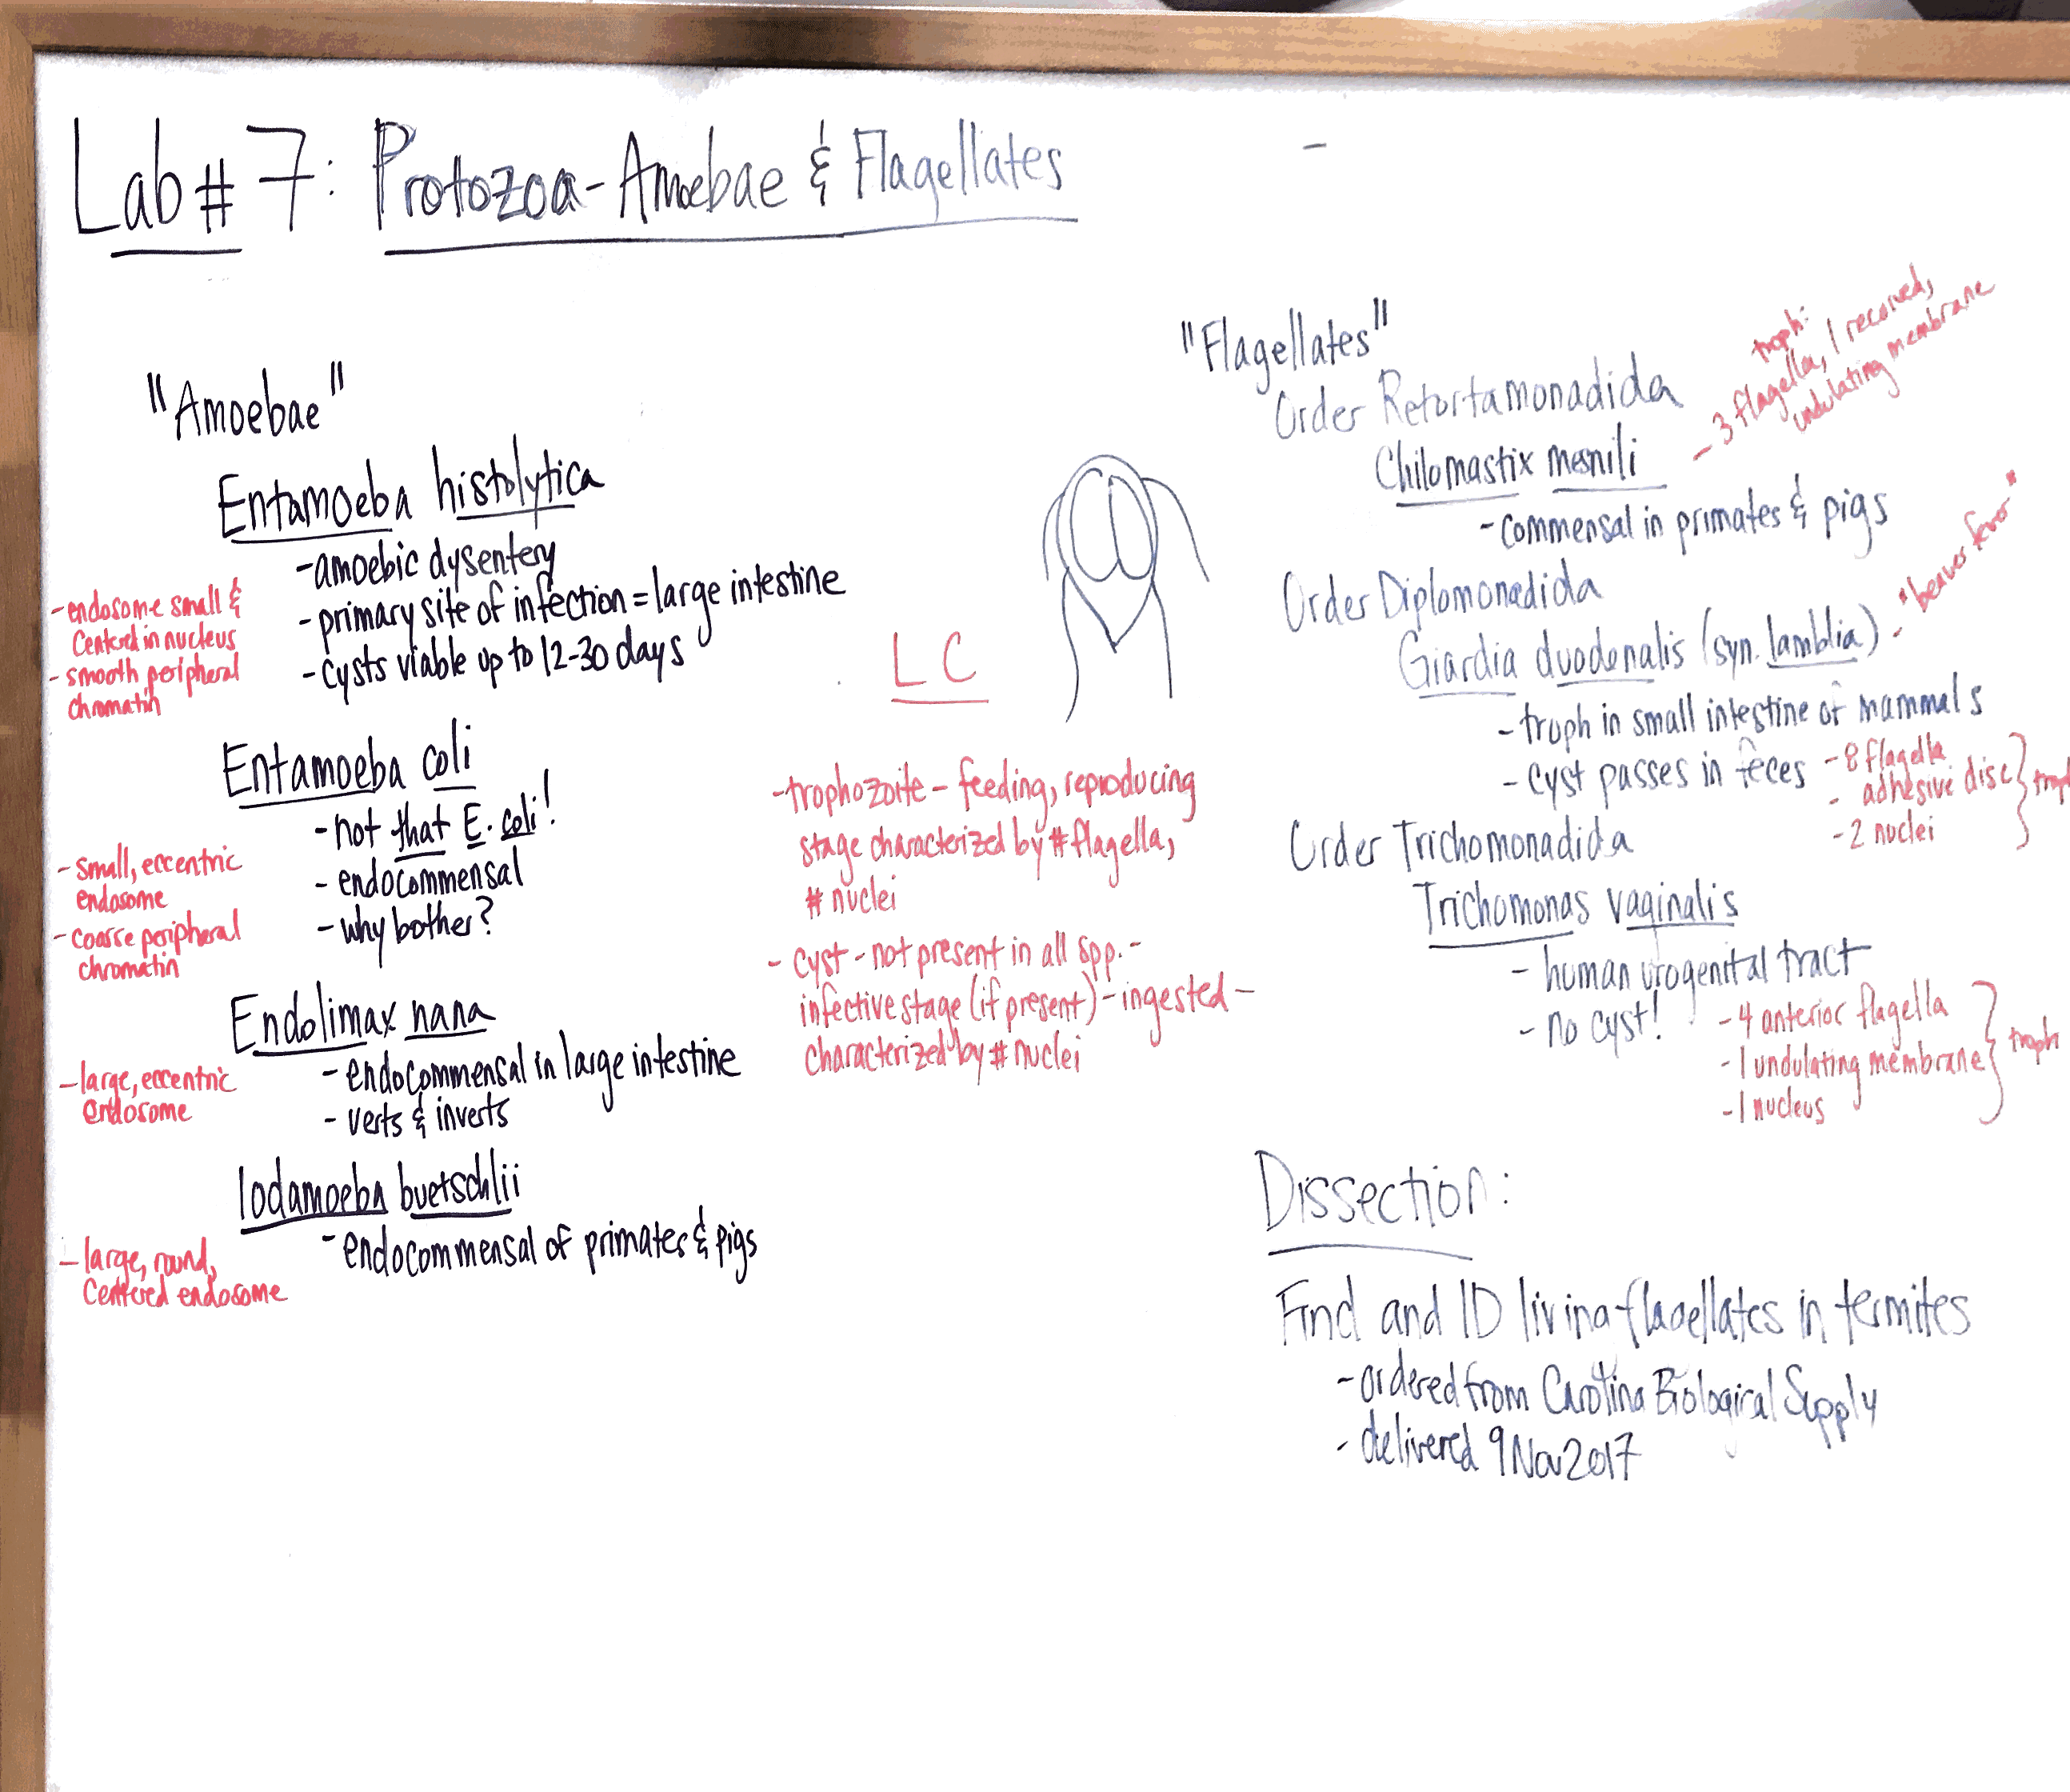 Lab # 7: Protozoa - Amoebae & Flagellates
-
"Amoebae"
Entamoeba histolytica
- amoebic dysentery
- primary site of infection = large intestine
- cysts viable up to 12-30 days
- endosome small &
centered in nucleus
- smooth peripheral
chromatin
Entamoeba coli
- not that E. coli!
- endocommensal
- why bother?
- small, eccentric
endosome
- coarse peripheral
chromatin
Endolimax nana
- endocommensal in large intestine
- verts & inverts
- large, eccentric
endosome
Iodamoeba buetschlii
- endocommensal of primates & pigs
- large, round,
centered endosome
LC
- trophozoite - feeding, reproducing
stage characterized by # flagella,
# nuclei
- cyst - not present in all spp. -
infective stage (if present) - ingested -
characterized by # nuclei
"Flagellates"
Order Retortamonadida
Chilomastix mesnili
troph:
- 3 flagella, 1 recurved,
undulating membrane
- commensal in primates & pigs
Order Diplomonadida
Giardia duodenalis (syn. lamblia) - "beaver fever"
- troph in small intestine of mammals
- cyst passes in feces
- 8 flagella
- adhesive disc } troph
- 2 nuclei
Order Trichomonadida
Trichomonas vaginalis
- human urogenital tract
- no cyst!
- 4 anterior flagella
- 1 undulating membrane } troph
- 1 nucleus
Dissection:
Find and ID living flagellates in termites
- ordered from Carolina Biological Supply
- delivered 9 Nov 2017